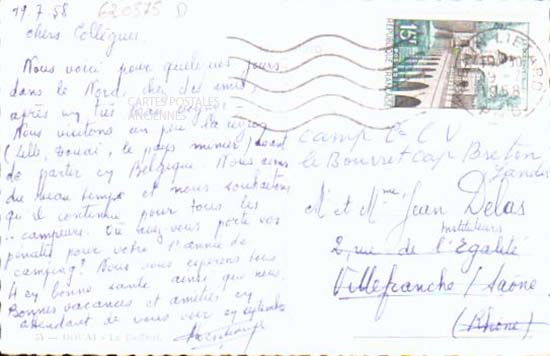 19.7.58 620575 D
Chers Collègues.
Nous voici pour quelques jours
dans le Nord, chez des amis,
après un très
Nous visitons un peu la région
(Lille, Douai, le pays minier) avant
de partir en Belgique. Nous avons
du beau temps et nous souhaitons
qu'il continue pour tous les
campeurs. Où avez-vous porté vos
pénates pour votre 1° année de
camping? Nous vous espérons tous
4 en bonne santé ainsi que nous.
Bonnes vacances et amitiés en
attendant de vous voir en septembre
DOUAI - Le Beffroi
CARTES POSTALES
ANCIENNES
15F
REPUBLIQUE FRANÇAISE
LIEVARD
19 -7
1958
Camp C V
le Bourret Cap Breton
Landes
M. et Mme Jean Delas
Instituteurs
2, rue de l'Égalité
Villefranche / Saône
(Rhône)